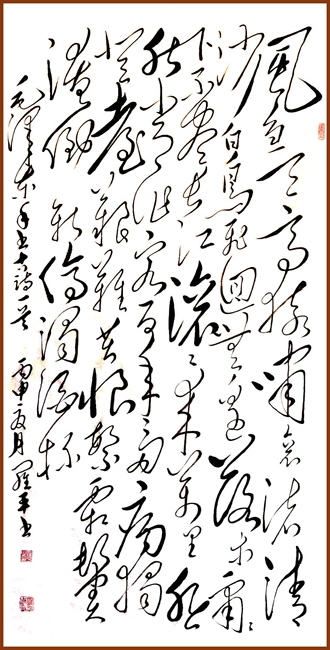 風急天高猿嘯哀渚清
沙白鳥飛迴無邊落木蕭々
下不盡長江滚々来萬里悲
秋常作客百年多病獨
登臺艱難苦恨繁霜鬢
潦倒新停濁酒杯
毛澤东手书古詩一首 丙申夏月羅平书